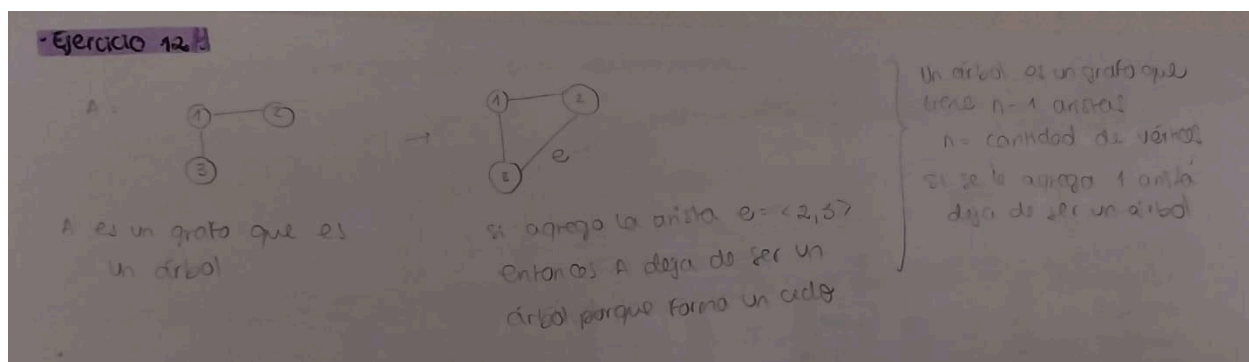 - Ejercicio 12
A =
1 2
3
→
1 2
3
e
A es un grafo que es
un árbol
si agrego la arista e = <2,3>
entonces A deja de ser un
árbol porque forma un ciclo
Un árbol es un grafo que
tiene n-1 aristas
n = cantidad de vértices
si se le agrega 1 arista
deja de ser un árbol